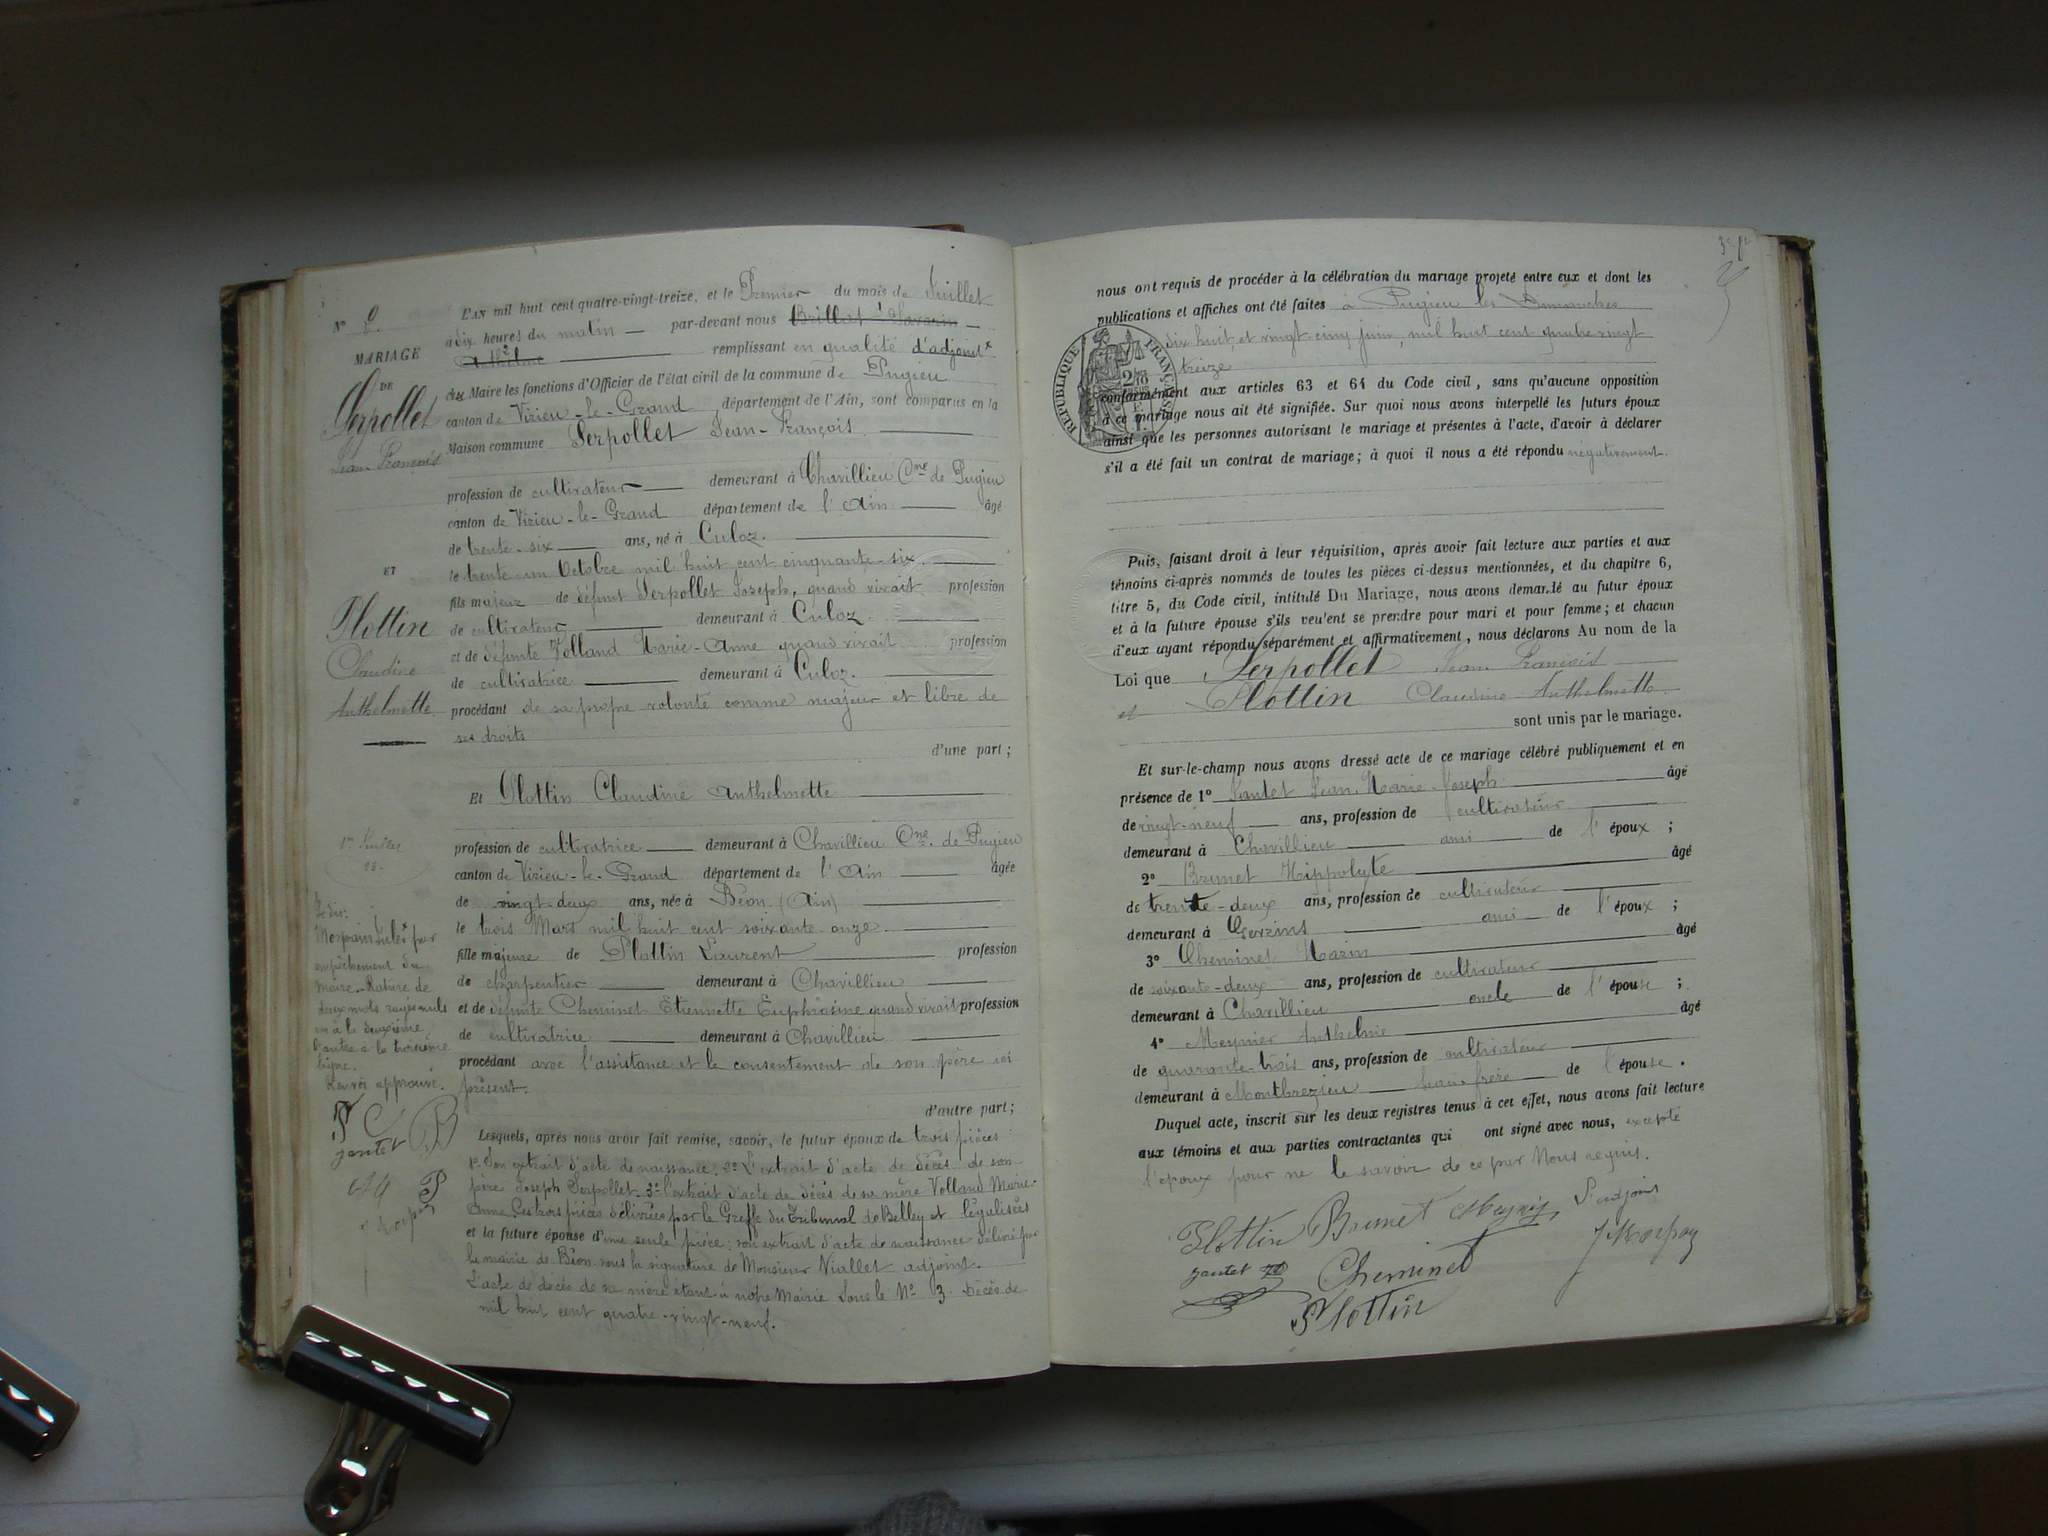 L'AN mil huit cent quatre-vingt-treize, et le Premier du mois de Juillet
à dix heures du matin par-devant nous Brillat Savarin
Anthelme remplissant en qualité d'adjoint x
du Maire les fonctions d'Officier de l'état civil de la commune de Pugieu
canton de Virieu-le-Grand département de l'Ain, sont comparus en la
Maison commune Serpollet Jean-François
profession de cultivateur demeurant à Chavillieu Cne de Pugieu
canton de Virieu-le-Grand département de l'Ain âgé
de trente-six ans, né à Culoz.
le trente-un Octobre mil huit cent cinquante-six.
fils majeur de défunt Serpollet Joseph, quand vivait profession
de cultivateur demeurant à Culoz.
et de défunte Volland Marie-Anne quand vivait profession
de cultivatrice demeurant à Culoz.
procédant de sa propre volonté comme majeur et libre de
ses droits
d'une part;
Et Plottin Claudine Anthelmette
profession de cultivatrice demeurant à Chavillieu Cne. de Pugieu
canton de Virieu-le-Grand département de l'Ain âgée
de vingt-deux ans, née à Béon (Ain)
le trois Mars mil huit cent soixante-onze
fille majeure de Plottin Laurent profession
de charpentier demeurant à Chavillieu
et de défunte Cheminet Etiennette Euphrosine quand vivait profession
de cultivatrice demeurant à Chavillieu
procédant avec l'assistance et le consentement de son père ici
présent.
d'autre part;
Lesquels, après nous avoir fait remise, savoir, le futur époux de trois pièces
1º Son extrait d'acte de naissance. 2º L'extrait d'acte de décès de son
père Joseph Serpollet. 3º l'extrait d'acte de décès de sa mère Volland Marie-
Anne. Ces trois pièces délivrées par le Greffe du Tribunal de Belley et légalisées
et la future épouse d'une seule pièce: son extrait d'acte de naissance délivré par
la mairie de Béon sous la signature de Monsieur Niallet adjoint.
L'acte de décès de sa mère étant à notre Mairie sous le Nº 3. Décès de
mil huit cent quatre-vingt-neuf.
Nº
MARIAGE
DE
Serpollet
Jean François
ET
Plottin
Claudine
Anthelmette
1er Juillet
93.
Je dis:
Morpain Jules x par
empêchement du
maire. Rature de
deux mots rayés nuls
un à la deuxième
l'autre à la troisième
ligne.
Renvoi approuvé.
P C B
jantet
P
nous ont requis de procéder à la célébration du mariage projeté entre eux et dont les
publications et affiches ont été faites à Pugieu les Dimanches
dix huit, et vingt-cinq juin, mil huit cent quatre vingt
treize
RÉPUBLIQUE FRANÇAISE
conformément aux articles 63 et 64 du Code civil, sans qu'aucune opposition
à ce mariage nous ait été signifiée. Sur quoi nous avons interpellé les futurs époux
ainsi que les personnes autorisant le mariage et présentes à l'acte, d'avoir à déclarer
s'il a été fait un contrat de mariage; à quoi il nous a été répondu négativement.
Puis, faisant droit à leur réquisition, après avoir fait lecture aux parties et aux
témoins ci-après nommés de toutes les pièces ci-dessus mentionnées, et du chapitre 6,
titre 5, du Code civil, intitulé Du Mariage, nous avons demandé au futur époux
et à la future épouse s'ils veulent se prendre pour mari et pour femme; et chacun
d'eux ayant répondu séparément et affirmativement, nous déclarons Au nom de la
Loi que Serpollet Jean François
et Plottin Claudine Anthelmette
sont unis par le mariage.
Et sur-le-champ nous avons dressé acte de ce mariage célébré publiquement et en
présence de 1º Jantet Jean Marie Joseph âgé
de vingt-neuf ans, profession de cultivateur
demeurant à Chavillieu ami de l'époux ;
2º Brunet Hippolyte âgé
de trente-deux ans, profession de cultivateur
demeurant à ami de l'époux ;
3º Cheminet Marin âgé
de soixante-deux ans, profession de cultivateur
demeurant à Chavillieu oncle de l'épouse ;
4º Meynier Anthelme âgé
de quarante-trois ans, profession de cultivateur
demeurant à Montbrezieu beau-frère de l'épouse.
Duquel acte, inscrit sur les deux registres tenus à cet effet, nous avons fait lecture
aux témoins et aux parties contractantes qui ont signé avec nous, excepté
l'époux pour ne le savoir de ce par Nous requis.
Plottin Brunet Meynier L'adjoint
jantet Cheminet J Morpain
Plottin